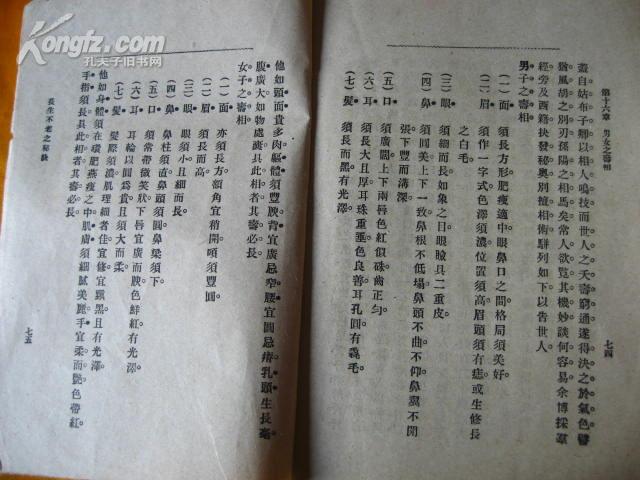 Kongfz.com
孔夫子旧书网
第十六章　男女之壽相
蓋自姑布子卿以相人鳴技而世人之夭壽窮通遂得決之於氣色譬
猶風胡之別刃孫陽之相馬矣常人欲覽其機妙談何容易余博採羣
經旁及西籍抉發秘奧別擅相術駢列如下以告世人
男子之壽相
（一）面　須長方形肥瘦適中眼鼻口之間格局須美好
（二）眉　須作一字式色澤須濃位置須高眉頭須有痣或生修長
之白毛
（三）眼　須細而長如象之目眼瞼具二重皮
（四）鼻　須圓美上下一致鼻根不低塌鼻頭不曲不仰鼻翼不開
張下豐而溝深
（五）口　須廣闊上下兩唇色紅似硃齒正勻
（六）耳　須長大且厚耳珠重垂色良善耳孔圓有毳毛
（七）髮　須長而黑有光澤
七四
他如頭面貴多肉軀體須豐腴背宜廣忌窄腰宜圓忌瘠乳頭生長毫
腹廣大如物處囊具此相者其壽必長
女子之壽相
（一）面　亦須長方額角宜稍開項須豐圓
（二）眉　須長而高
（三）眼　眼須小且細而長
（四）鼻　鼻柱須直鼻頭須圓鼻梁須下
（五）口　須常帶微笑狀下唇宜廣而腴色鮮紅有光澤
（六）耳　耳輪以圓爲貴且須大而柔
（七）髮　髮際須濃肌理細者佳宜修宜黑且有光澤
他如身體須在環肥燕瘦之中肌膚須細膩美麗手宜柔而艷色帶紅
手指須長具此相者其壽必長
長生不老之秘訣
七五